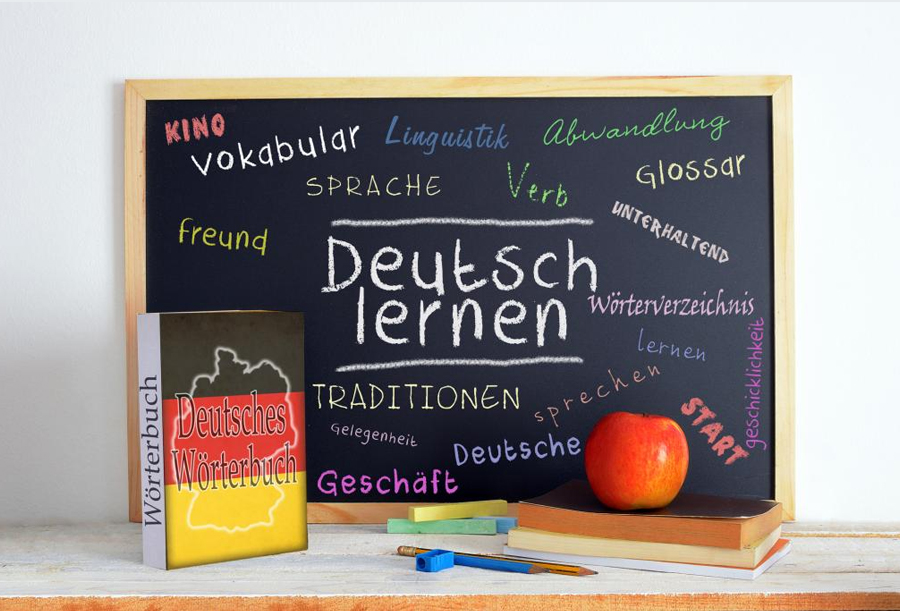 KINO
Vokabular
Linguistik
Abwandlung
SPRACHE
Verb
Glossar
freund
UNTERHALTEND
Deutsch
lernen
Wörterverzeichnis
lernen
geschicklichkeit
TRADITIONEN
sprechen
START
Gelegenheit
Deutsche
Geschäft
Wörterbuch
Deutsches
Wörterbuch